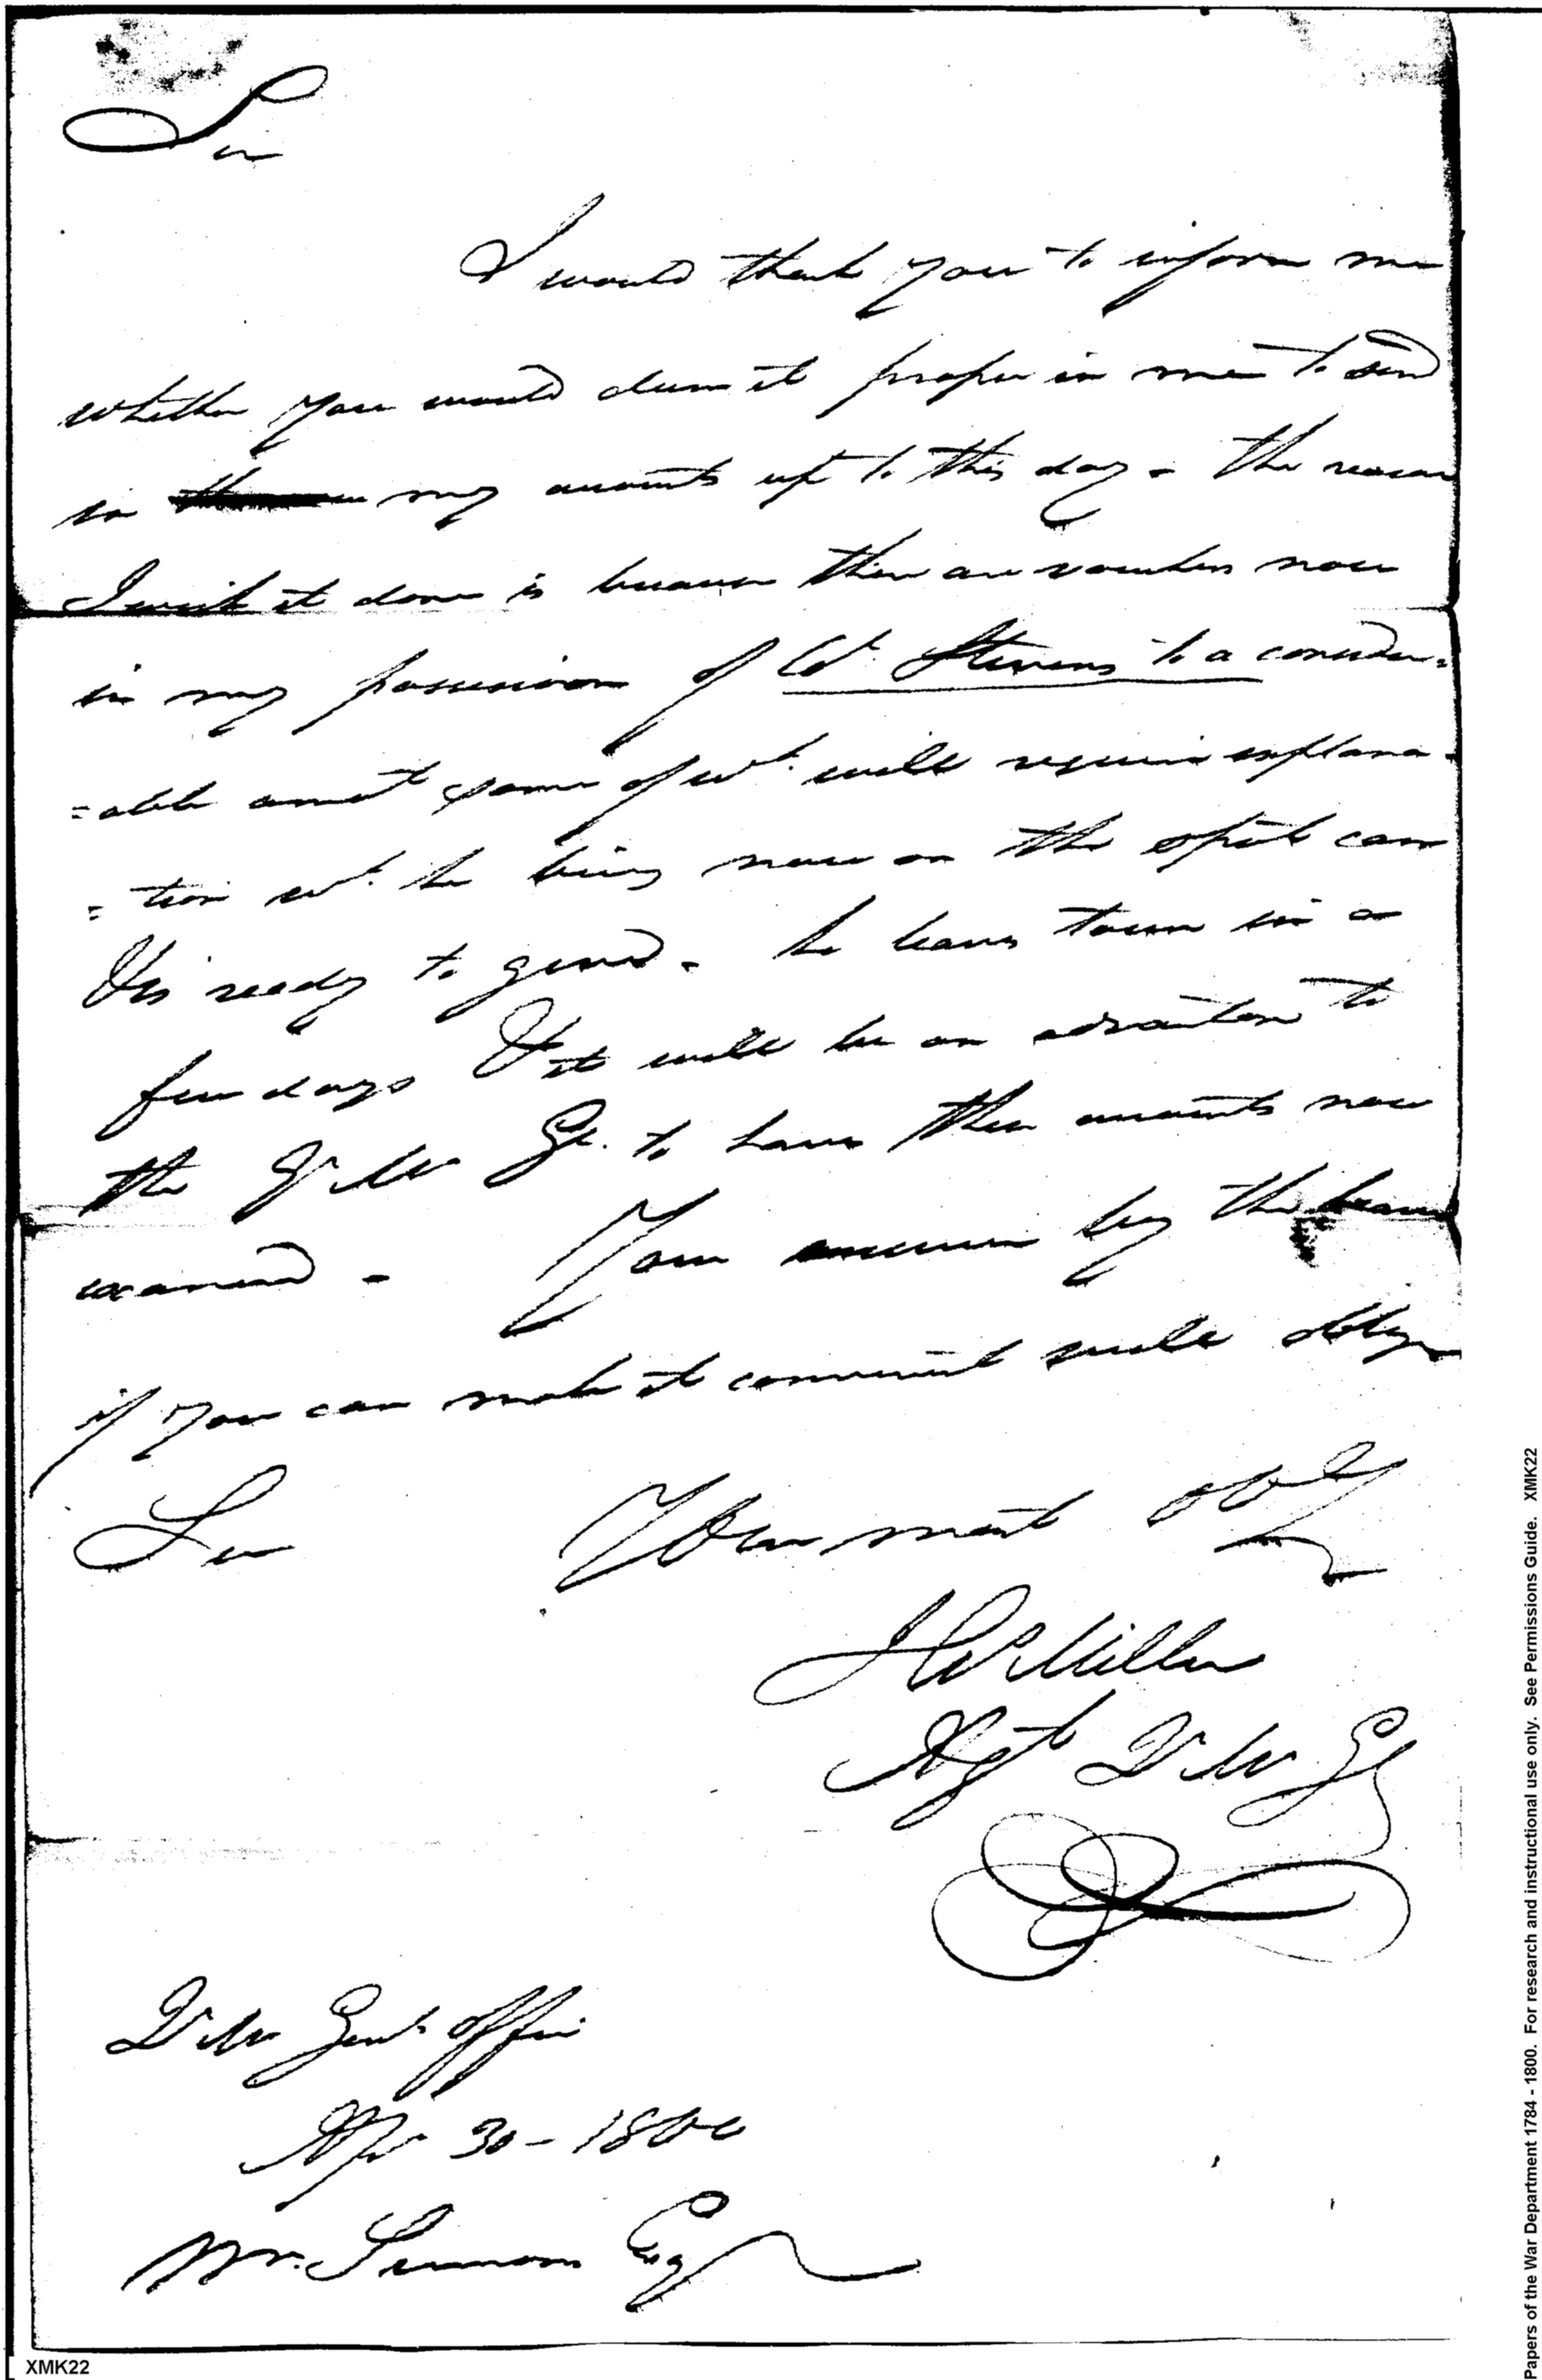 Sir
I would thank you to inform me
whether you would deem it proper in me to send
in my accounts up to this day - the reason
I wish it done is because there are vouchers now
in my possession of Col. Stevens to a consider=
=able amot some of wh. will require explana=
=tion wh. he being now on the spot can
ready to give - he leaves town in a
few days & it will be an advantage to
the Q M Gl. to have these accounts now
examined - Your answer by the bearer
if you can make it convenient will oblige
Sir Your most obt
H W Miller
Agt Q M Gl
Q M Genl. office
Apr 30 - 1800
Wm. Simmons Esq
XMK22
Papers of the War Department 1784 - 1800. For research and instructional use only. See Permissions Guide. XMK22